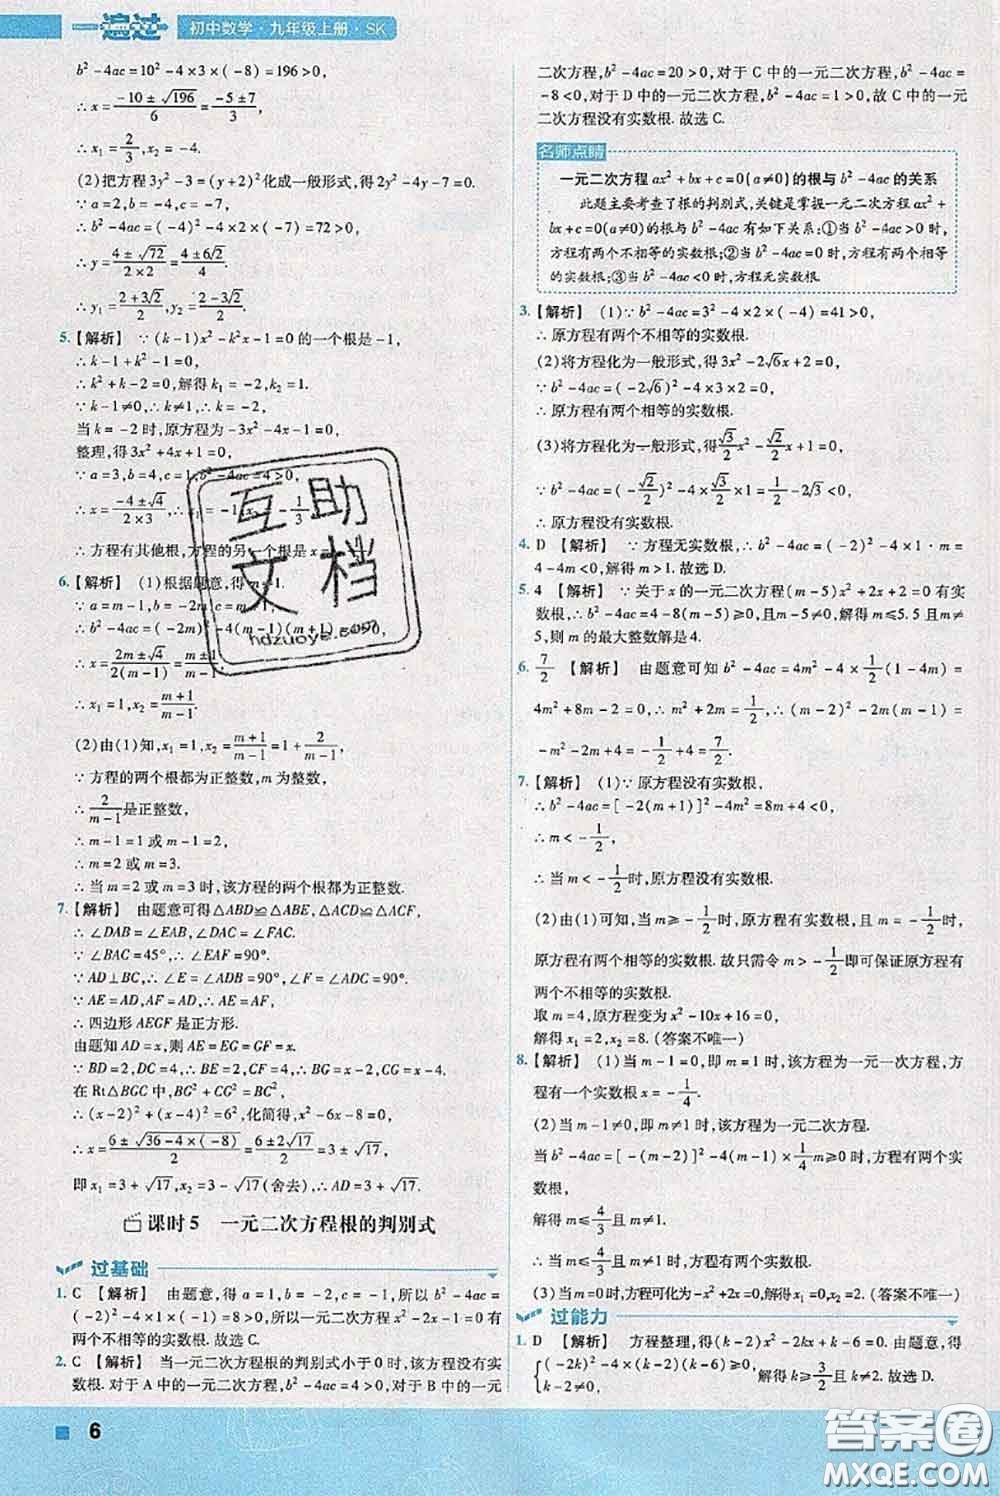 一遍过 初中数学·九年级上册·SK
b²-4ac=10²-4×3×(-8)=196>0,
∴x=(-10±√196)/6=(-5±7)/3,
∴x₁=2/3,x₂=-4.
(2)把方程3y²-3=(y+2)²化成一般形式,得2y²-4y-7=0,
∵a=2,b=-4,c=-7,
∴b²-4ac=(-4)²-4×2×(-7)=72>0,
∴y=(4±√72)/(2×2)=(4±6√2)/4.
∴y₁=(2+3√2)/2,y₂=(2-3√2)/2.
5.【解析】 ∵(k-1)x²-k²x-1=0的一个根是-1,
∴k-1+k²-1=0,
∴k²+k-2=0,解得k₁=-2,k₂=1.
∵k-1≠0,∴k≠1,∴k=-2,
当k=-2时,原方程为-3x²-4x-1=0,
整理,得3x²+4x+1=0,
∵a=3,b=4,c=1,b²-4ac=4>0,
∴x=(-4±√4)/(2×3),
1/3
∴方程有其他根,方程的另一个根是x=
6.【解析】 (1)根据题意,得m≠1.
∵a=m-1,b=-2m,c=m+1,
∴b²-4ac=(-2m)²-4(m-1)(m+1)
∴x=(2m±√4)/(2(m-1))=(m±1)/(m-1),
∴x₁=1,x₂=(m+1)/(m-1).
(2)由(1)知,x₁=1,x₂=(m+1)/(m-1)=1+2/(m-1).
∵方程的两个根都为正整数,m为整数,
∴2/(m-1)是正整数,
∴m-1=1或m-1=2,
∴m=2或m=3.
∴当m=2或m=3时,该方程的两个根都为正整数.
7.【解析】 由题意可得△ABD≌△ABE,△ACD≌△ACF,
∴∠DAB=∠EAB,∠DAC=∠FAC.
∵∠BAC=45°,∴∠EAF=90°.
∵AD⊥BC,∴∠E=∠ADB=90°,∠F=∠ADC=90°.
∵AE=AD,AF=AD,∴AE=AF,
∴四边形AEGF是正方形.
由题知AD=x,则AE=EG=GF=x.
∵BD=2,DC=4,∴BE=2,CF=4,∴BG=x-2,CG=x-4.
在Rt△BGC中,BG²+CG²=BC²,
∴(x-2)²+(x-4)²=6²,化简得,x²-6x-8=0,
∴x=(6±√(36-4×(-8)))/2=(6±2√17)/2,
即x₁=3+√17,x₂=3-√17(舍去),∴AD=x=3+√17.
课时5 一元二次方程根的判别式
过基础
1.C 【解析】 由题意,得a=1,b=-2,c=-1,所以b²-4ac=
(-2)²-4×1×(-1)=8>0,所以一元二次方程x²-2x-1=0有
两个不相等的实数根.故选C.
2.C 【解析】 当一元二次方程根的判别式小于0时,该方程没有实
数根.对于A中的一元二次方程,b²-4ac=4>0,对于B中的一元
二次方程,b²-4ac=20>0,对于C中的一元二次方程,b²-4ac=
-8<0,对于D中的一元二次方程,b²-4ac=1>0,故C中的一元
二次方程没有实数根.故选C.
名师点睛
一元二次方程ax²+bx+c=0(a≠0)的根与b²-4ac的关系
此题主要考查了根的判别式,关键是掌握一元二次方程ax²+
bx+c=0(a≠0)的根与b²-4ac有如下关系:①当b²-4ac>0时,
方程有两个不相等的实数根;②当b²-4ac=0时,方程有两个相等
的实数根;③当b²-4ac<0时,方程无实数根.
3.【解析】 (1)∵b²-4ac=3²-4×2×(-4)=41>0,
∴原方程有两个不相等的实数根.
(2)将方程化为一般形式,得3x²-2√6x+2=0,
∵b²-4ac=(-2√6)²-4×3×2=0,
∴原方程有两个相等的实数根.
(3)将方程化为一般形式,得√3/2x²-√2/2x+1=0,
∵b²-4ac=(-√2/2)²-4×√3/2×1=1/2-2√3<0,
∴原方程没有实数根.
4.D 【解析】 ∵方程无实数根,∴b²-4ac=(-2)²-4×1·m=
4-4m<0,解得m>1.故选D.
5.4 【解析】 ∵关于x的一元二次方程(m-5)x²+2x+2=0有实
数根,∴b²-4ac=4-8(m-5)≥0,且m-5≠0,解得m≤5.5且m
≠5,则m的最大整数解是4.
6.7/2 【解析】 由题意可知b²-4ac=4m²-4×1/2(1-4m)=
4m²+8m-2=0,∴m²+2m=1/2,∴(m-2)²-2m(m-1)=
-m²-2m+4=-1/2+4=7/2.
7.【解析】 (1)∵原方程没有实数根,
∴b²-4ac=[-2(m+1)]²-4m²=8m+4<0,
∴m<-1/2,
∴当m<-1/2时,原方程没有实数根.
(2)由(1)可知,当m≥-1/2时,原方程有实数根,当m=-1/2时,
原方程有两个相等的实数根.故只需令m>-1/2即可保证原方程有
两个不相等的实数根.
取m=4,原方程变为x²-10x+16=0,
解得x₁=2,x₂=8.(答案不唯一)
8.【解析】 (1)当m-1=0,即m=1时,该方程为一元一次方程,方
程有一个实数根x=-1/4.
(2)当m-1≠0,即m≠1时,该方程为一元二次方程.
当b²-4ac=[-(m-2)]²-4(m-1)×1/4m≥0时,方程有两个实
数根,
解得m≤4/3且m≠1.
∴当m≤4/3且m≠1时,方程有两个实数根.
(3)当m=0时,方程可化为-x²+2x=0,解得x₁=0,x₂=2.(答案不唯一)
过能力
1.D 【解析】 方程整理,得(k-2)x²-2kx+k-6=0.由题意,得
{(-2k)²-4(k-2)(k-6)≥0, k-2≠0, 解得k≥3/2且k≠2.故选D.
6
互助
文档
答案圈
MXQE.COM